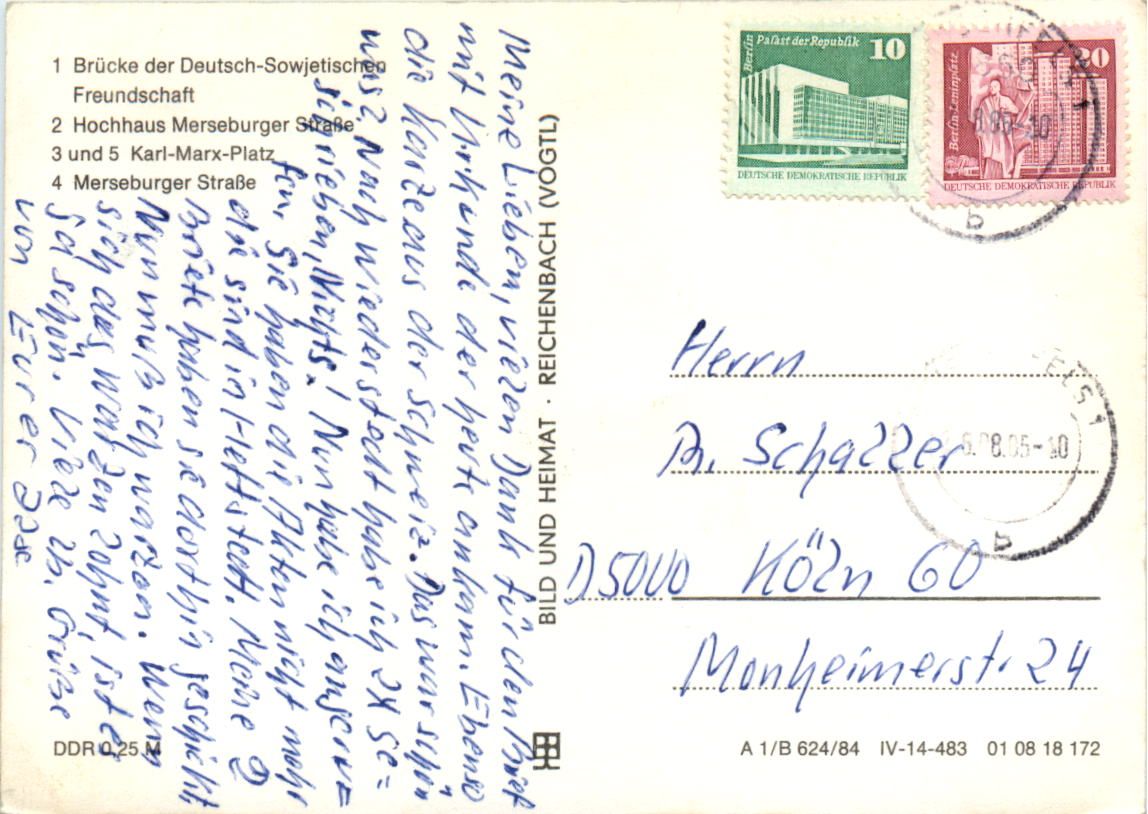 1 Brücke der Deutsch-Sowjetischen
Freundschaft
2 Hochhaus Merseburger Straße
3 und 5 Karl-Marx-Platz
4 Merseburger Straße
Meine Lieben, vielen Dank für den Brief
mit Urkunde der heute ankam. Ebenso
die Karte aus der Schweiz. Das war schön
was? Nach wiederstedt habe ich 2x ge=
schrieben, Nichts! Nun habe ich angeru=
fen. Sie haben die Alten nicht mehr
die sind in Hettstedt. Meine 2
Briefe haben sie dorthin geschickt.
Nun muß ich warten. Wenn
sich das warten lohnt, ist es
ja schön. Viele lb. Grüße
von Eurer Ilse
BILD UND HEIMAT · REICHENBACH (VOGTL)
Berlin Palast der Republik
10
DEUTSCHE DEMOKRATISCHE REPUBLIK
Berlin-Leninplatz
20
DEUTSCHE DEMOKRATISCHE REPUBLIK
b
ELS 1
b
Herrn
A. Schaller
D5000 Köln 60
Monheimerstr. 24
DDR 0,25 M
A 1/B 624/84 IV-14-483 01 08 18 172